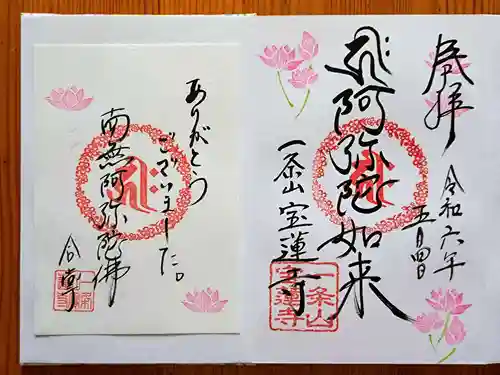 奉拝
令和六年
五月四日
阿弥陀如来
一条山宝蓮寺
一条山
宝蓮寺
ありがとう
ございました。
南無阿弥陀佛
合掌